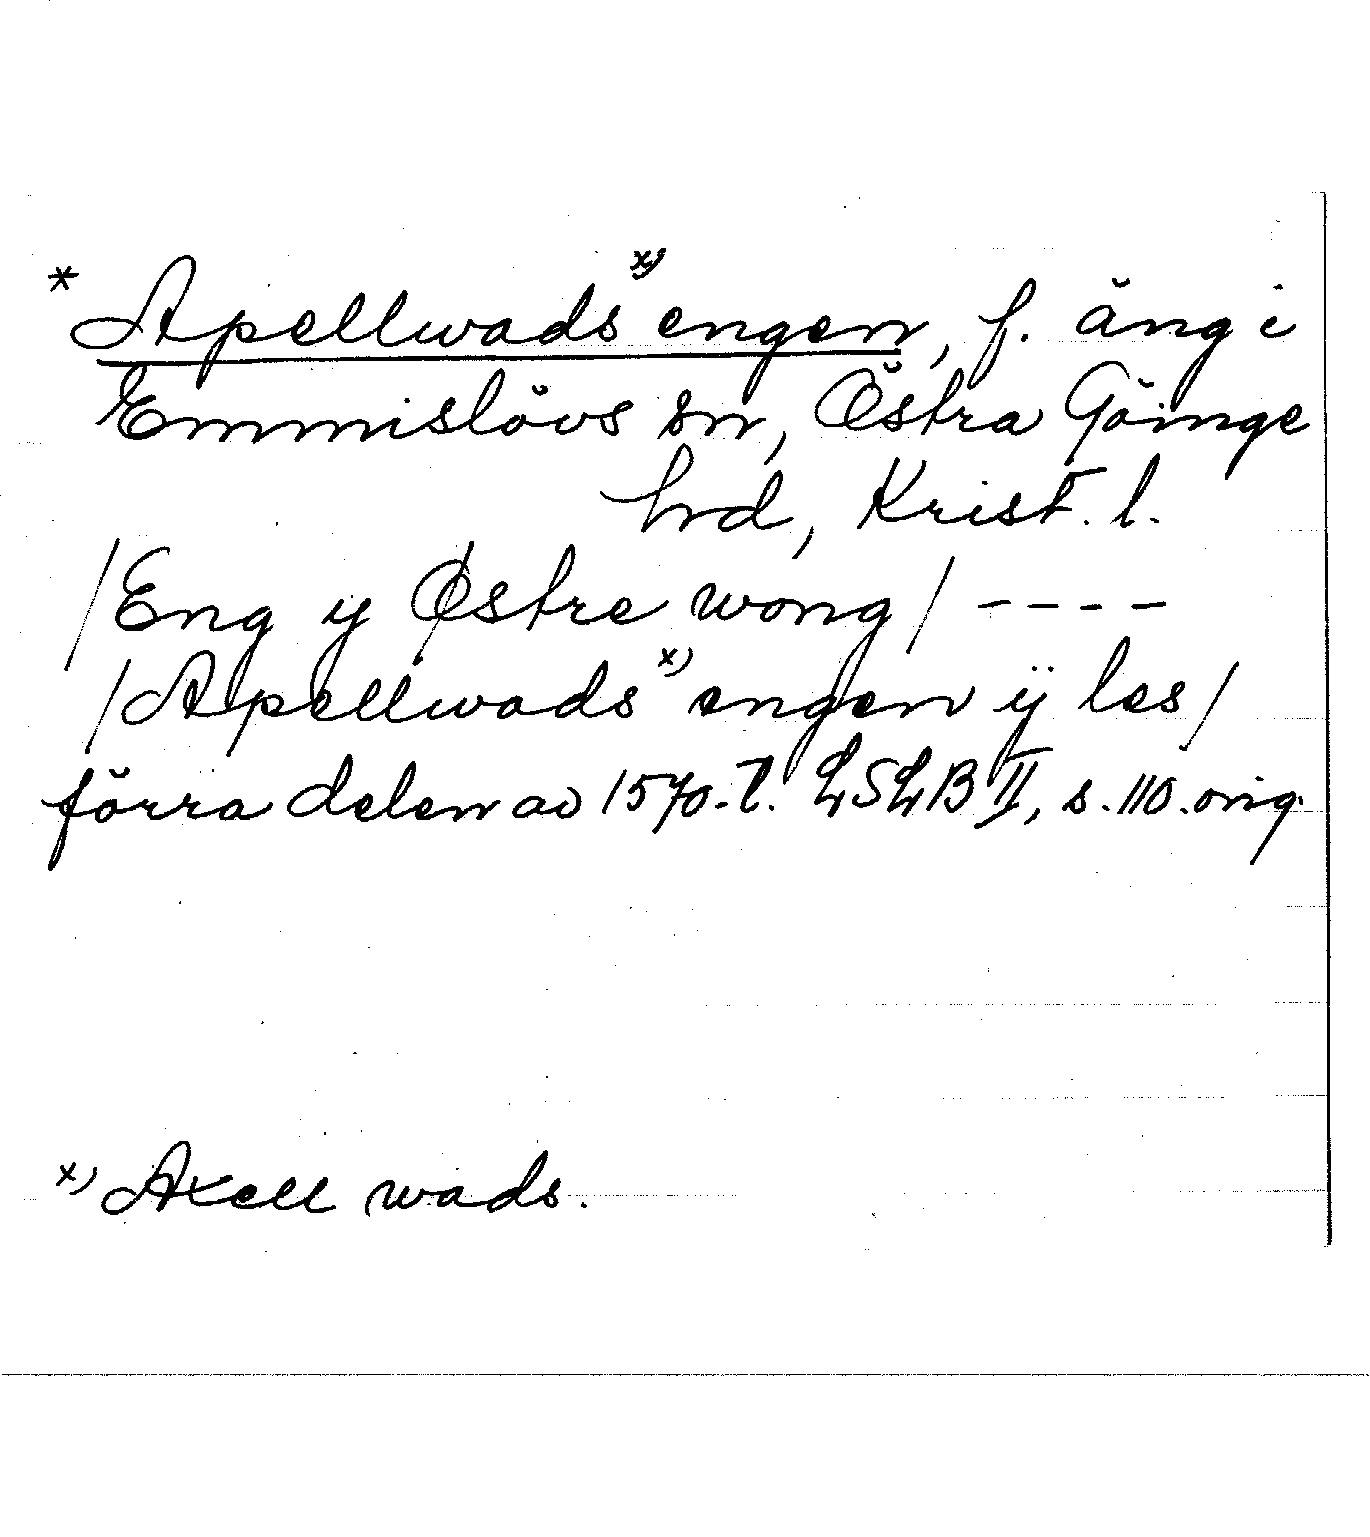 * Apellwads x) engen, f. äng i
Emmislövs sn, Östra Göinge
hrd, Krist. l.
/Eng y Østre wong/ ----
/Apellwads x) engen ÿ les/
förra delen av 1570-t. LSLB II, s. 110. orig.
x) Axell wads.